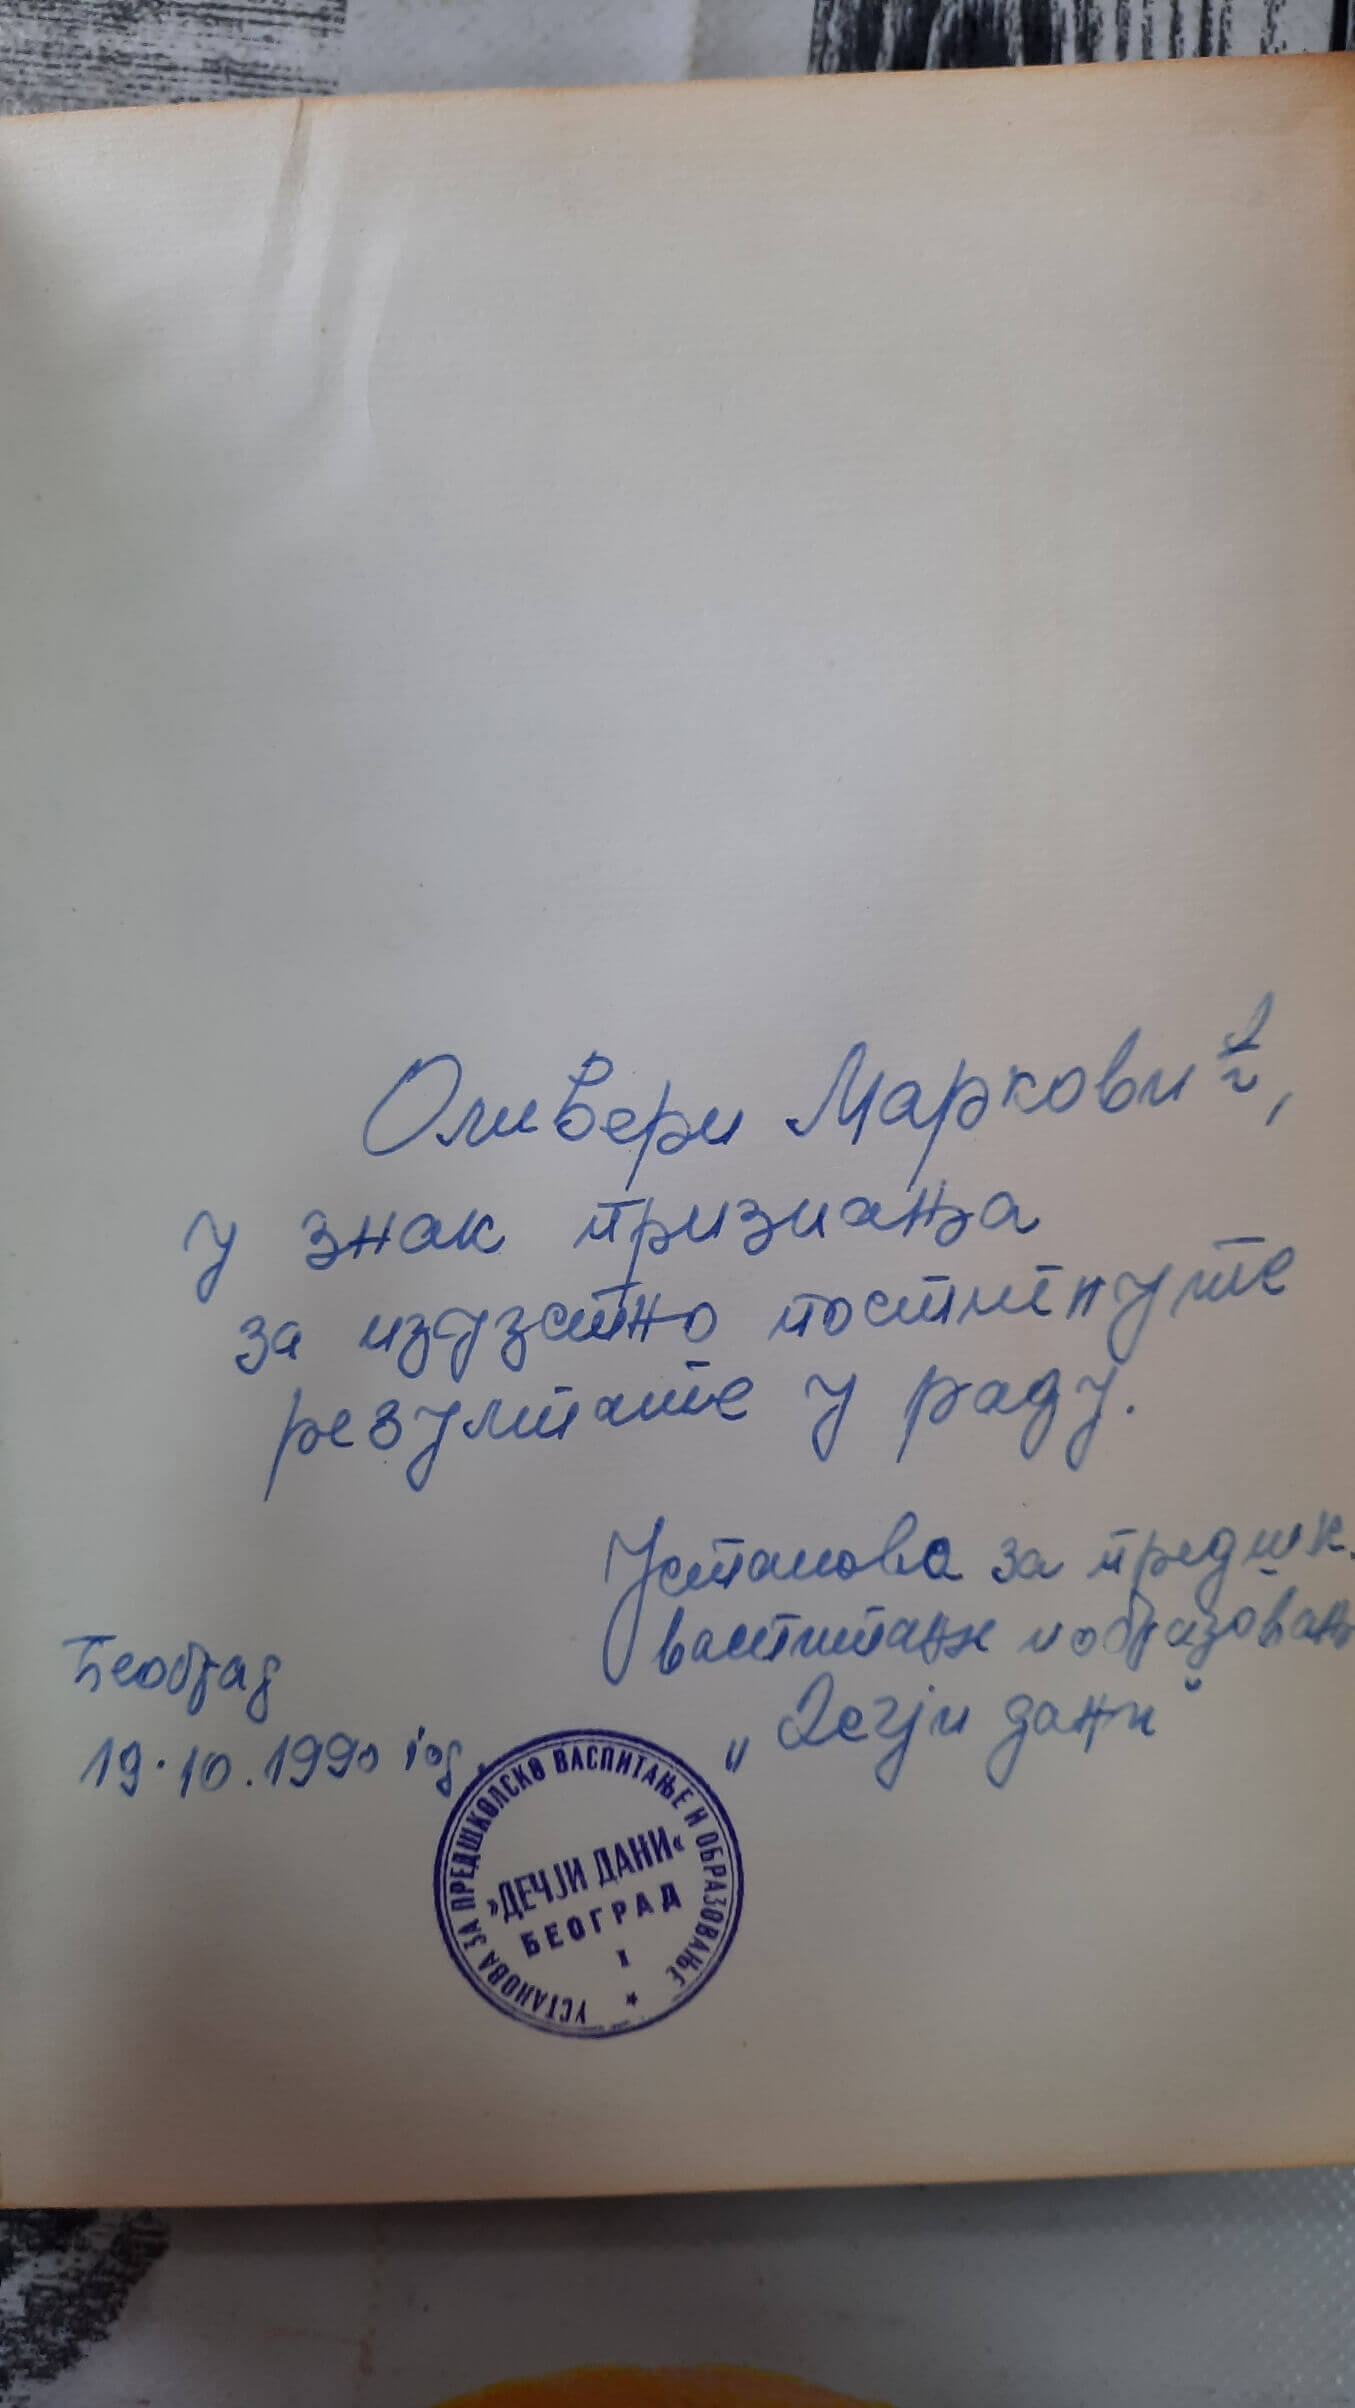 Оливери Марковић,
у знак признања
за изузетно постигнуте
резултате у раду.
Установа за предшк.
васпитање и образовањ
„Дечји дани“
Београд
19.10.1990 год.
УСТАНОВА ЗА ПРЕДШКОЛСКО ВАСПИТАЊЕ И ОБРАЗОВАЊЕ
»ДЕЧЈИ ДАНИ«
БЕОГРАД
I